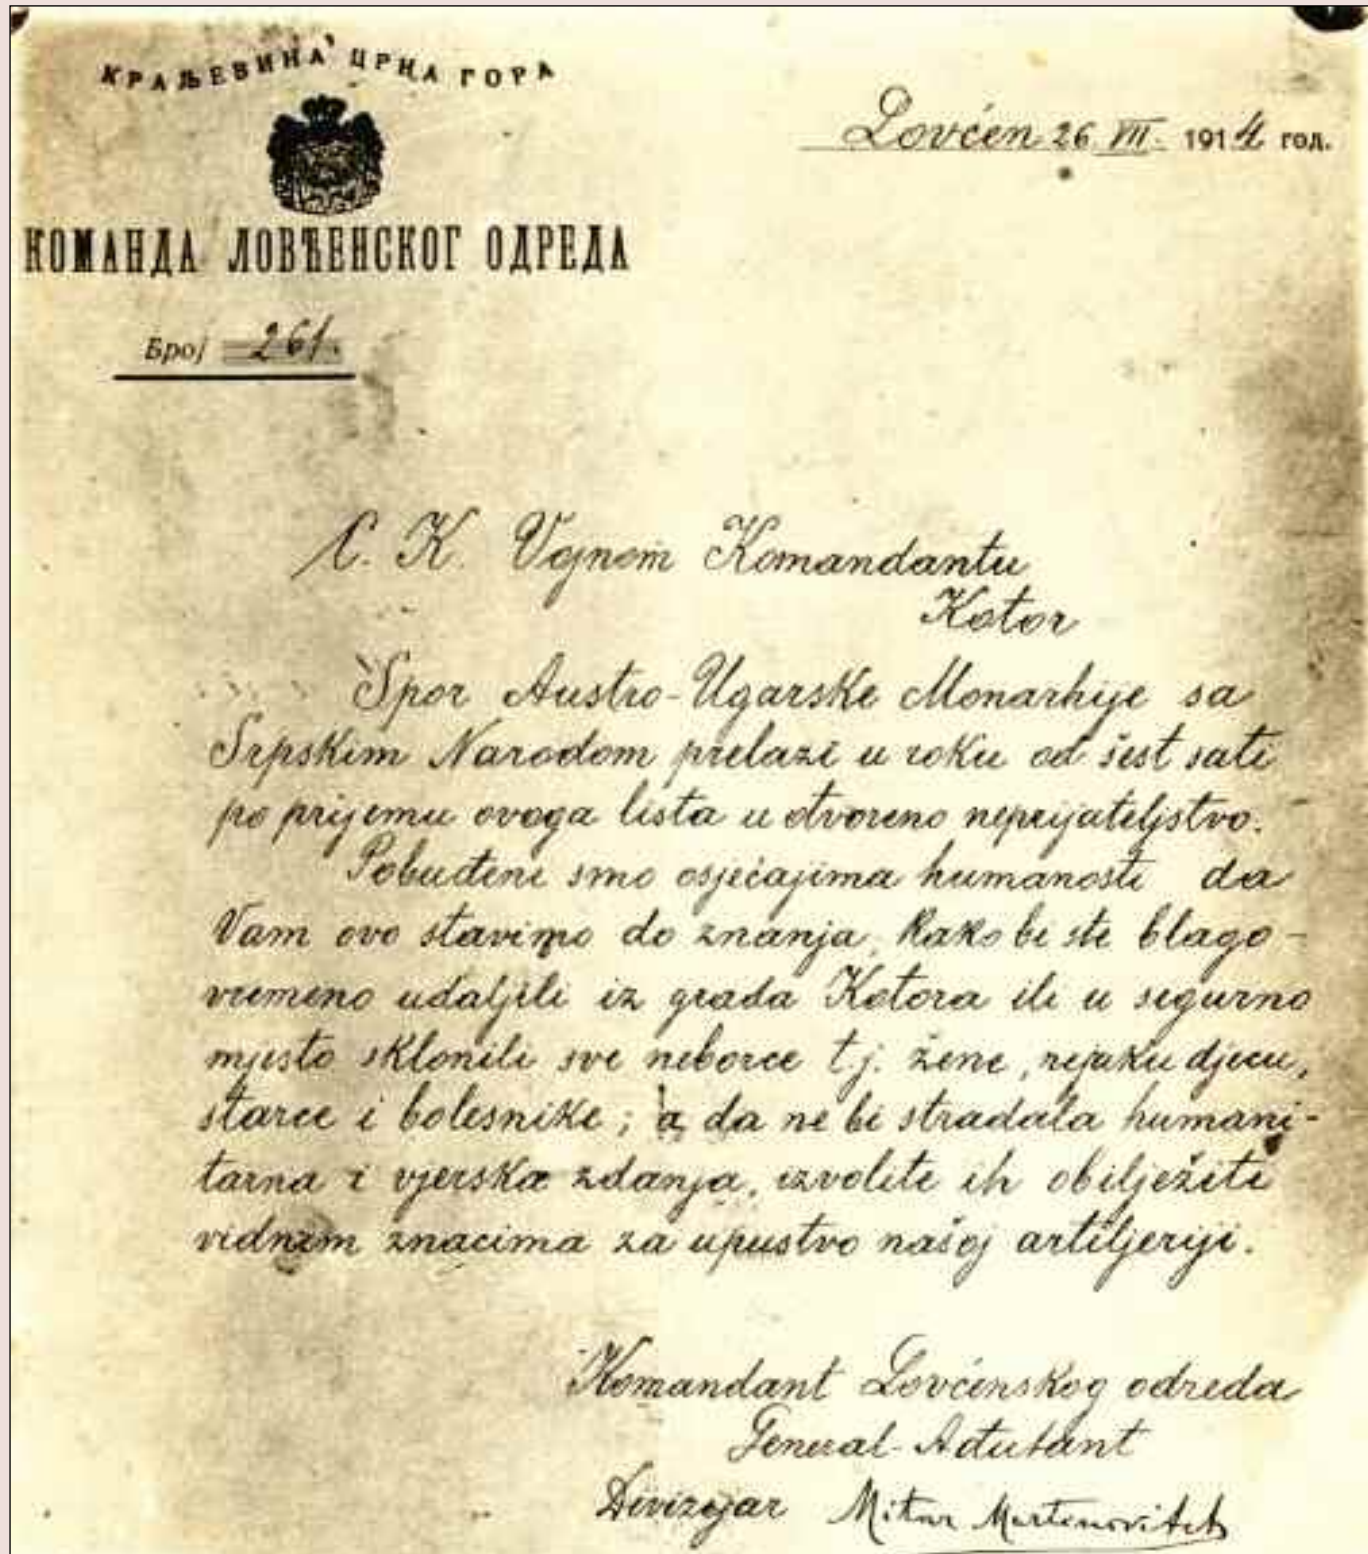 КРАЉЕВИНА ЦРНА ГОРА
КОМАНДА ЛОВЋЕНСКОГ ОДРЕДА
Број 261.
Lovćen 26 VII. 1914 год.
C. K. Vojnom Komandantu
Kotor
Spor Austro-Ugarske Monarhije sa
Srpskim Narodom prelazi u roku od šest sati
po prijemu ovoga lista u otvoreno neprijateljstvo.
Pobuđeni smo osjećajima humanosti da
Vam ovo stavimo do znanja, kako bi ste blago-
vremeno udaljili iz grada Kotora ili u sigurno
mjesto sklonili sve neborce t.j. žene, nejaku djecu,
starce i bolesnike; a da ne bi stradala humani-
tarna i vjerska zdanja, izvolite ih obilježiti
vidnim znacima za upustvo našoj artiljeriji.
Komandant Lovćenskog odreda
General-Ađutant
Divizijar Mitar Martinovitch